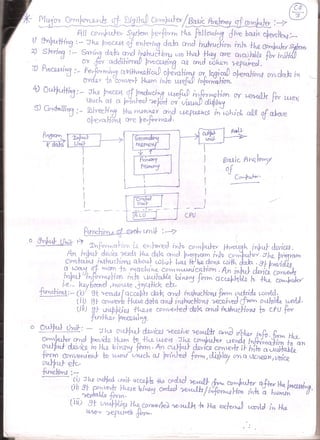 CF
3
* Major Components of Digital Computer / Basic Anatomy of Computer :->
All computer system perform the following five basic operations:-
1) Inputting :- The process of entering data and instructions into the computer system
2) Storing :- Saving data and instructions so that they are available for initial
or for additional processing as and when required.
3) Processing :- Performing arithmetical operations or logical operations on data in
order to convert them into useful information.
4) Outputting :- The process of producing useful information or results for user
such as a printed report or visual display
5) Controlling :- Directing the manner and sequence in which all of above
operations are performed.
Program & data
Input Unit
Secondary Memory
Output unit
Result
Primary Memory
Basic Anatomy of Computer
Control Unit
ALU
CPU
Functions of each unit :->
o Input Unit :->
Information is entered into computer through input devices.
An input device reads the data and program into computer. The program
contains instructions about what has to be done with data. It provides
a way of man to machine communication. An input device converts
input information into suitable binary form acceptable to the computer
i.e. keyboard, mouse, joystick etc.
functions :- (i) It reads/accepts data and instructions from outside world.
(ii) It converts these data and instructions received from outside world.
(iii) It supplies these converted data and instructions to CPU for
further processing.
o Output Unit :- The output devices receive results and other info. from the
computer and provide them to the users. The computer sends information to an
output device in the binary form. An output device converts it into a suitable
form convenient to user such as printed form, display on a screen, voice
output etc.
functions :-
(i) The output unit accepts the coded result from computer after the processing.
(ii) It converts these binary coded results/information into a human
readable form.
(iii) It supplies the converted results to the external world in the
user required form.